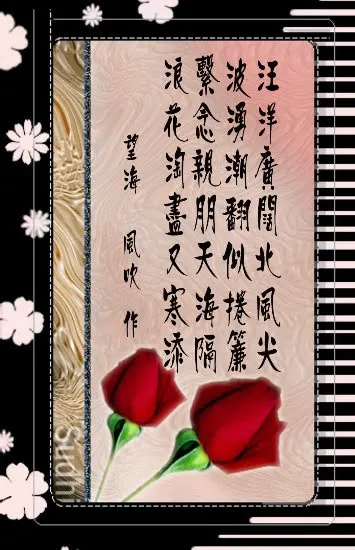 汪洋廣闊北風尖
波湧潮翻似捲簾
繫念親朋天海隔
浪花淘盡又寒添
望海 風吹 作
Sudhi